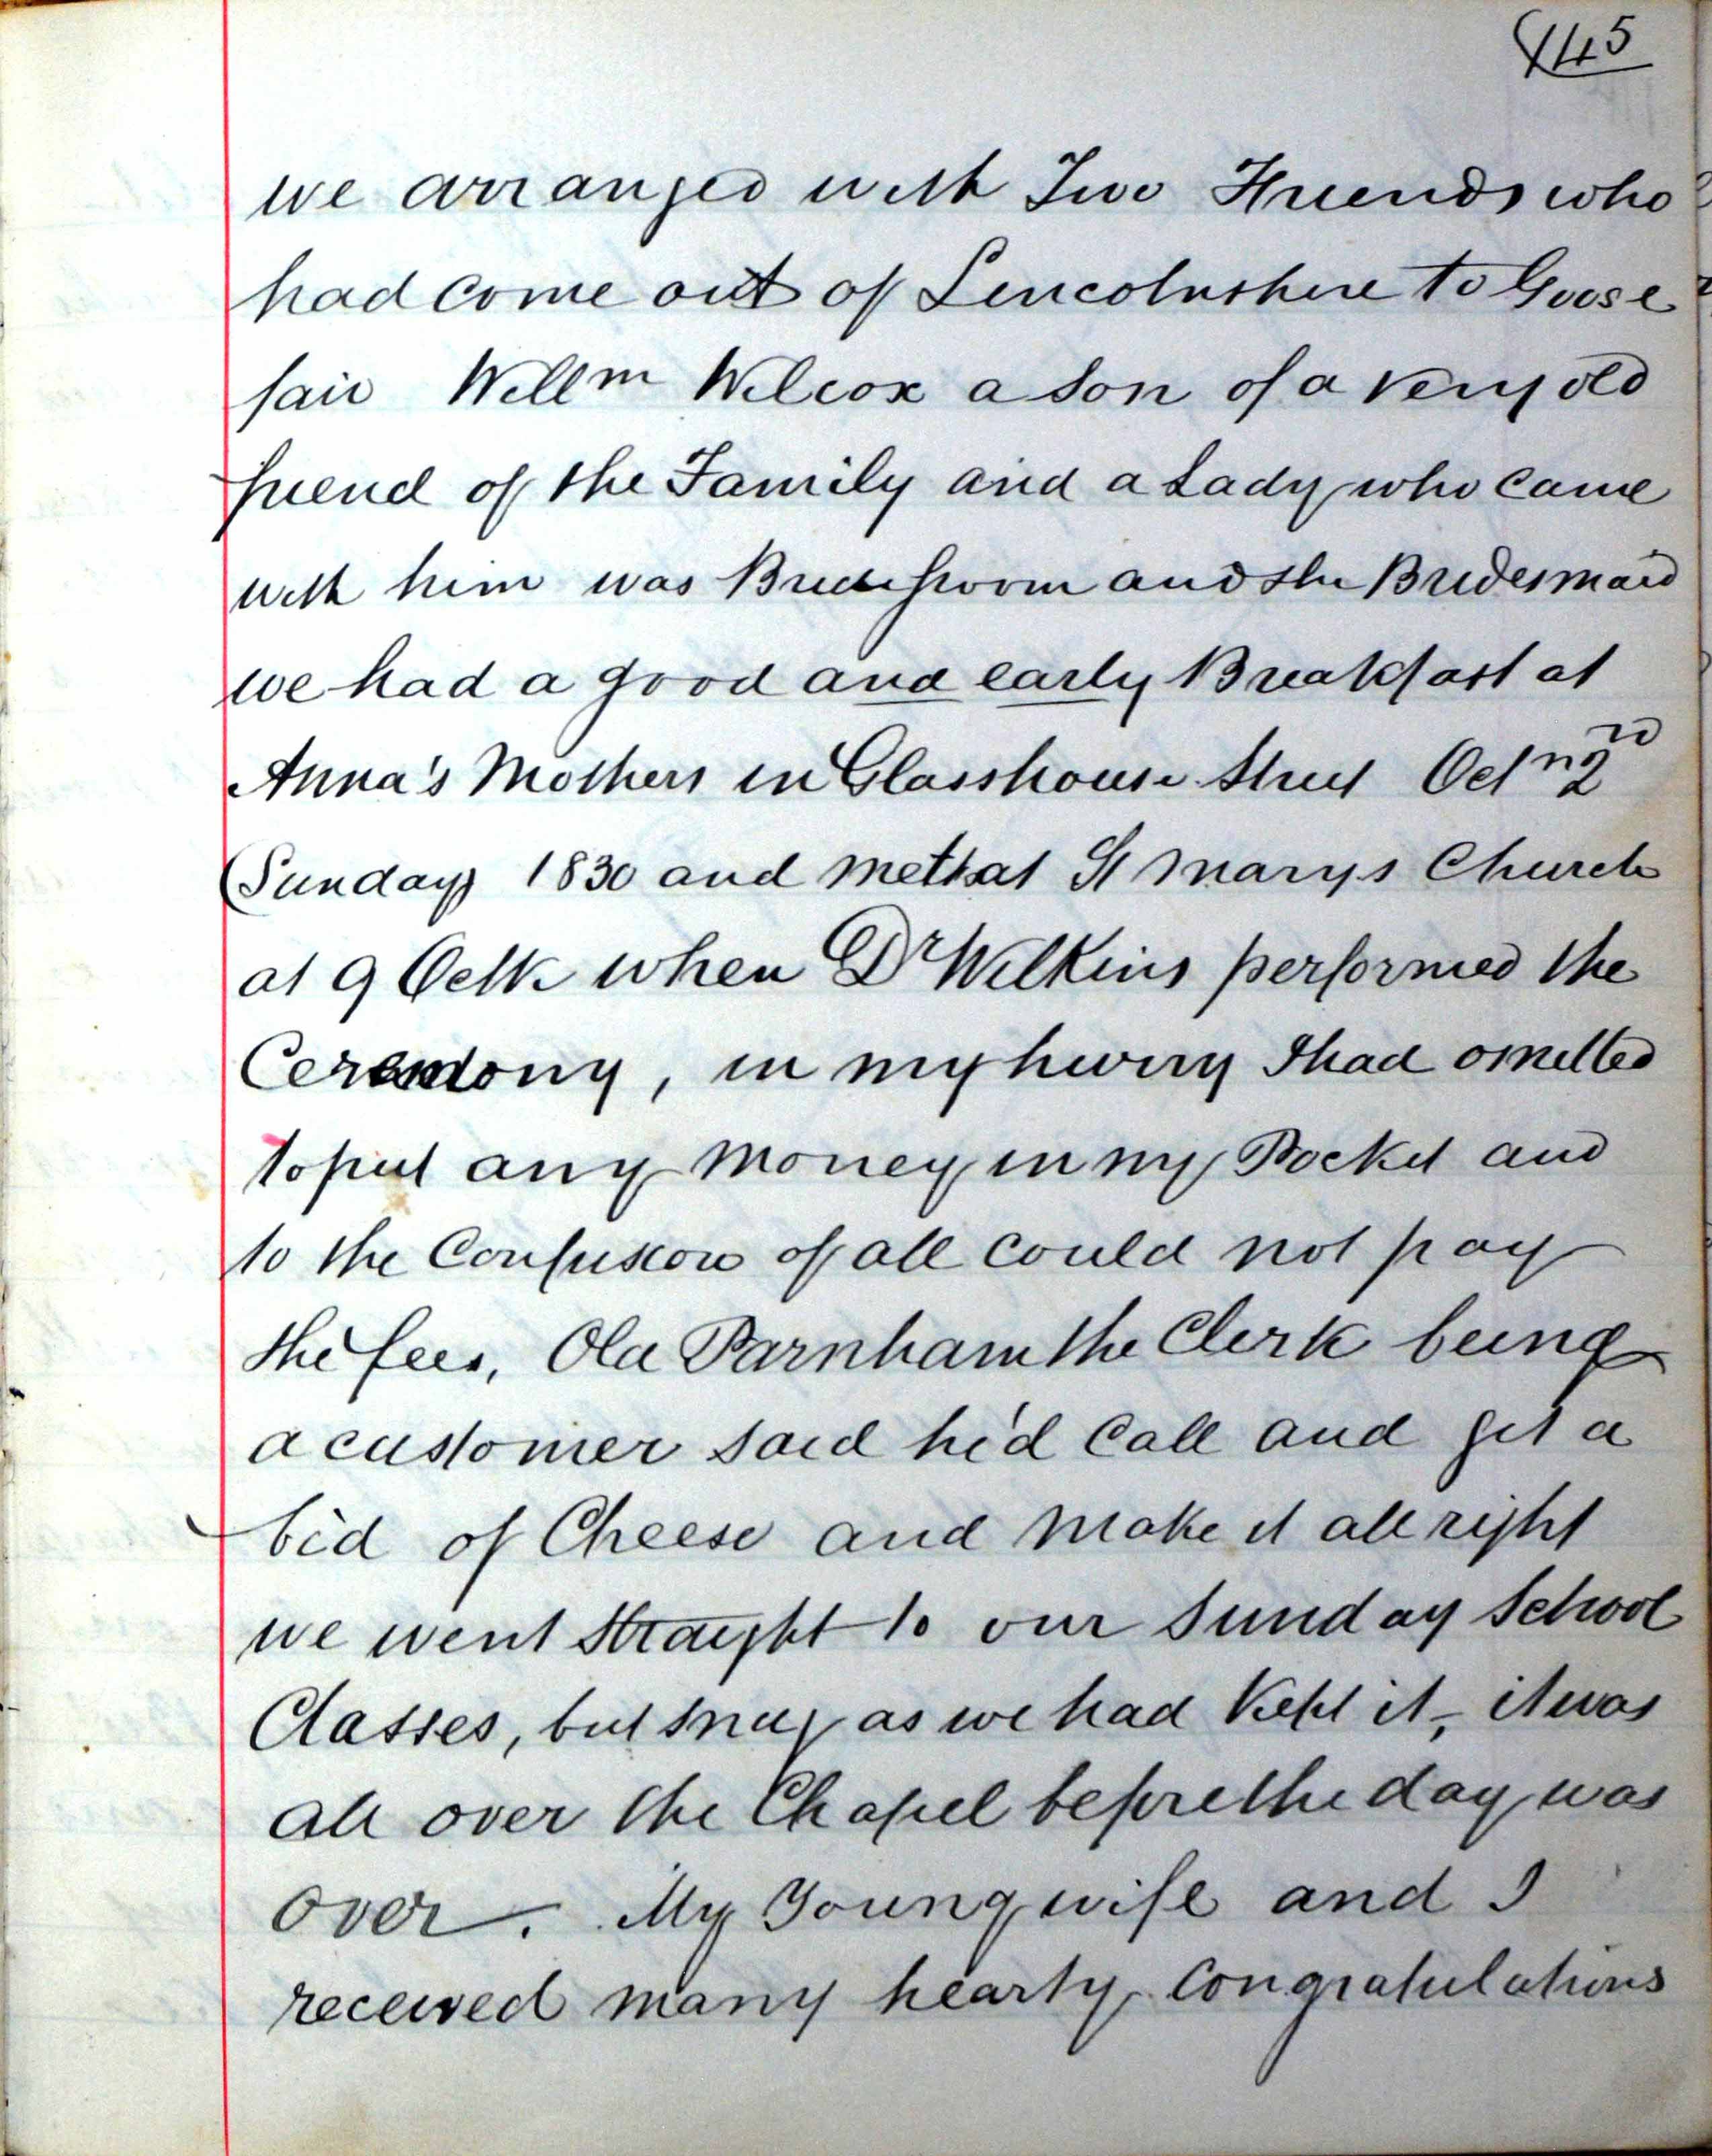 145
we arranged with Two Friends who
had come out of Lincolnshire to Goose
fair Willm Wilcox a son of a very old
friend of the Family and a Lady who came
with him was Bridegroom and the Bridesmaid
we had a good and early Breakfast at
Anna's Mothers in Glasshouse Street Oct 2nd
(Sunday) 1830 and met at St Marys Church
at 9 Oclk when Dr Wilkins performed the
Ceremony, in my hurry I had omitted
to put any money in my Pocket and
to the Confusion of all could not pay
the fees, Old Parnham the Clerk being
a customer said he'd Call and get a
bid of Cheese and make it all right
we went straight to our Sunday School
Classes, but snug as we had Kept it, it was
all over the Chapel before the day was
over. My Young wife and I
received many hearty Congratulations